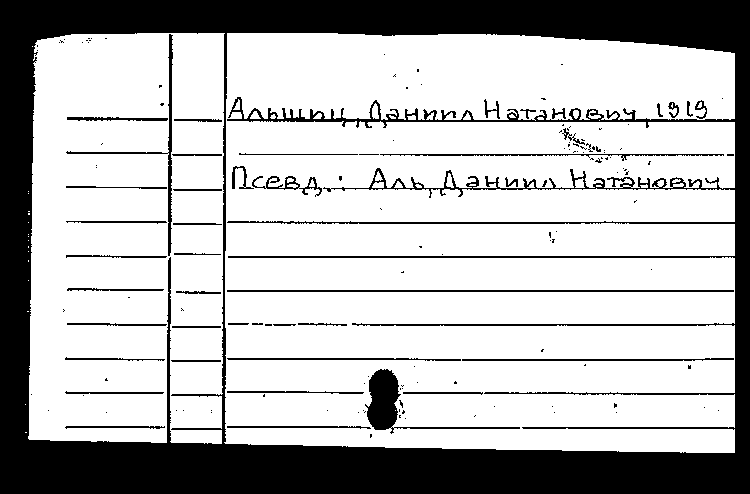 Альшиц, Даниил Натанович, 1919
Псевд.: Аль, Даниил Натанович